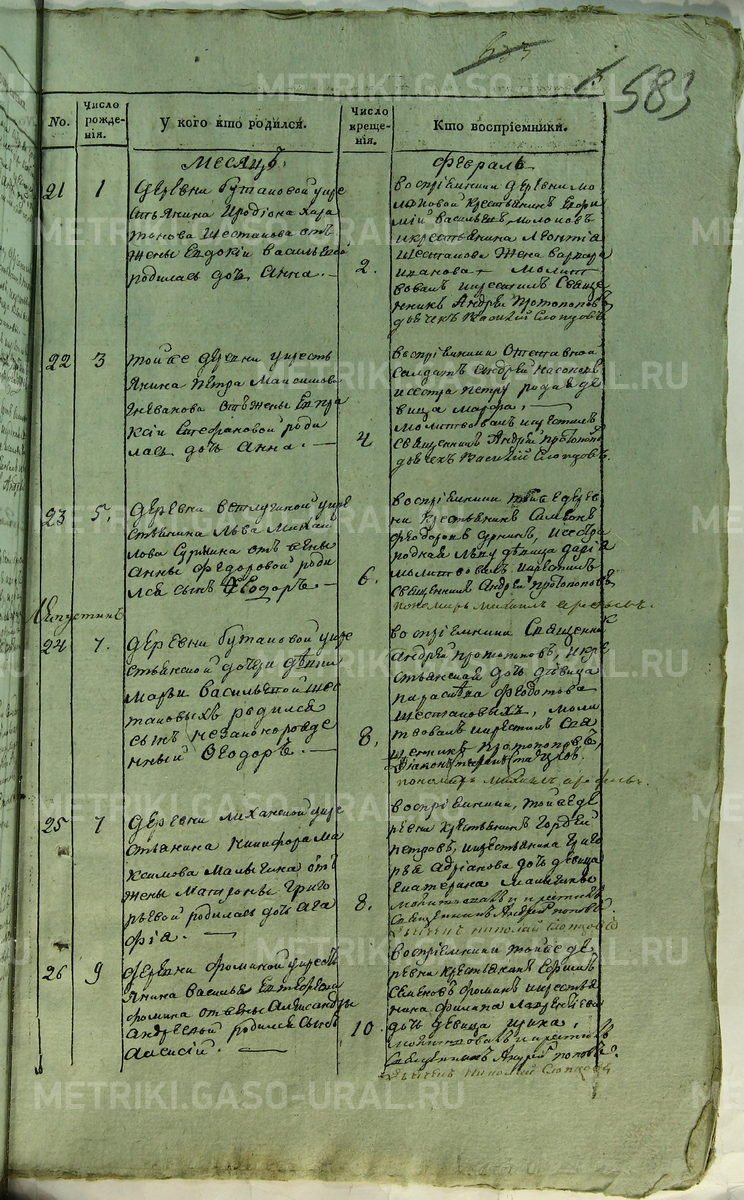 583
No.
Число рожденія.
У кого кто родился.
Число крещенія.
Кто воспріемники.
Месяцъ
Февраль
21
1
деревни бутаковой у кре
стьянина Иродіона Хари
тонова Шестакова отъ
жены Евдокіи Василье
родилась дочь Анна. —
2.
воспріемники деревни мо
локовой крестьянинъ
Васильевъ Молоковъ
и крестьянина Леонтія
Шестакова жена Варвара
Иванова молит
вовалъ и крестилъ Свяще
нникъ Андрей Протопоповъ
дьячекъ Василій Слопцовъ
22
3
той же деревни у кресть
янина Петра Максимова
отъ жены Евпра
ксіи Стефановой роди
лась дочь Анна. —
4
воспріемники Отставной
Солдатъ Андрей
и сестра Петру родная де
вица Марфа. —
молитвовалъ и крестилъ
Священникъ Андрей Протопоповъ
дьячекъ Василій Слопцовъ
23
5.
деревни ветлугиной у кре
стьянина Льва Михай
лова Суркина отъ жены
Анны Федоровой роди
лся сынъ Феодоръ —
6.
воспріемники той же дерев
ни крестьянинъ Симеонъ
Феодоровъ Суркинъ, и сестра
родная Льву девица Дарія
молитвовалъ и крестилъ
Священникъ Андрей Протопоповъ
пономарь Михаилъ
24
7.
деревни бутаковой у кре
стьянской дочери девки
Марьи Васильевой Шес
таковыхъ родился
сынъ незаконорожде
нный Феодоръ. —
8.
воспріемники Священникъ
Андрей Протопоповъ, и кре
стьянская дочь девица
Параскева Федотова
Шестаковыхъ, моли
твовалъ и крестилъ Свя
щенникъ Протопоповъ
пономарь Михаилъ
25
7
деревни у кре
стьянина Никифора Ма
ксимова Малыгина отъ
жены Матроны Григо
рьевой родилась дочь Ага
фіа. —
8.
воспріемники, той же де
ревни крестьянинъ Гордей
Петровъ, и крестьянина Григо
рья Адріанова дочь девица
Екатерина
молитвовалъ и крестилъ
Священникъ Андрей Поповъ
Николай Слопцовъ
26
9
деревни фоминой у кресть
янина Василья
Фомина от жены Александры
Андреевой родился сынъ
Алексій. —
10.
воспріемники той же де
ревни крестьянинъ Ефимъ
Семеновъ Фоминъ и кресть
янина Филипа Лаврентіева
дочь девица
молитвовалъ и крестилъ
Священникъ Андрей Поповъ
Николай Слопцовъ
METRIKI.GASO-URAL.RU